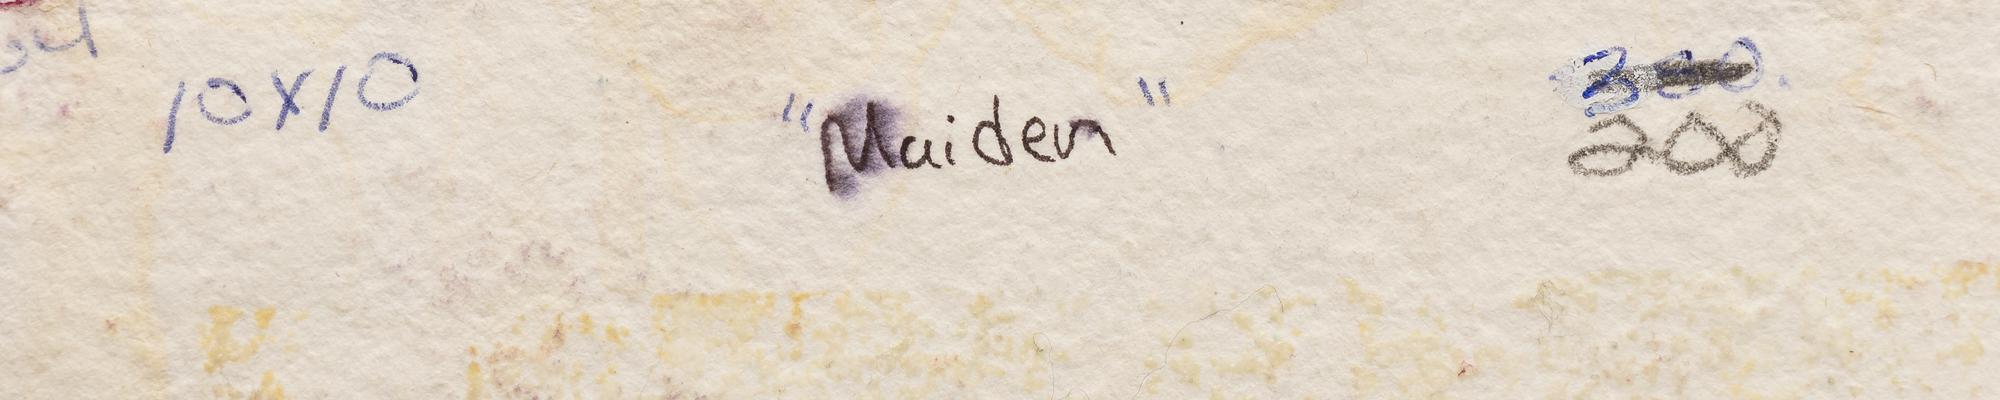 10x10
"Maiden"
300.
200